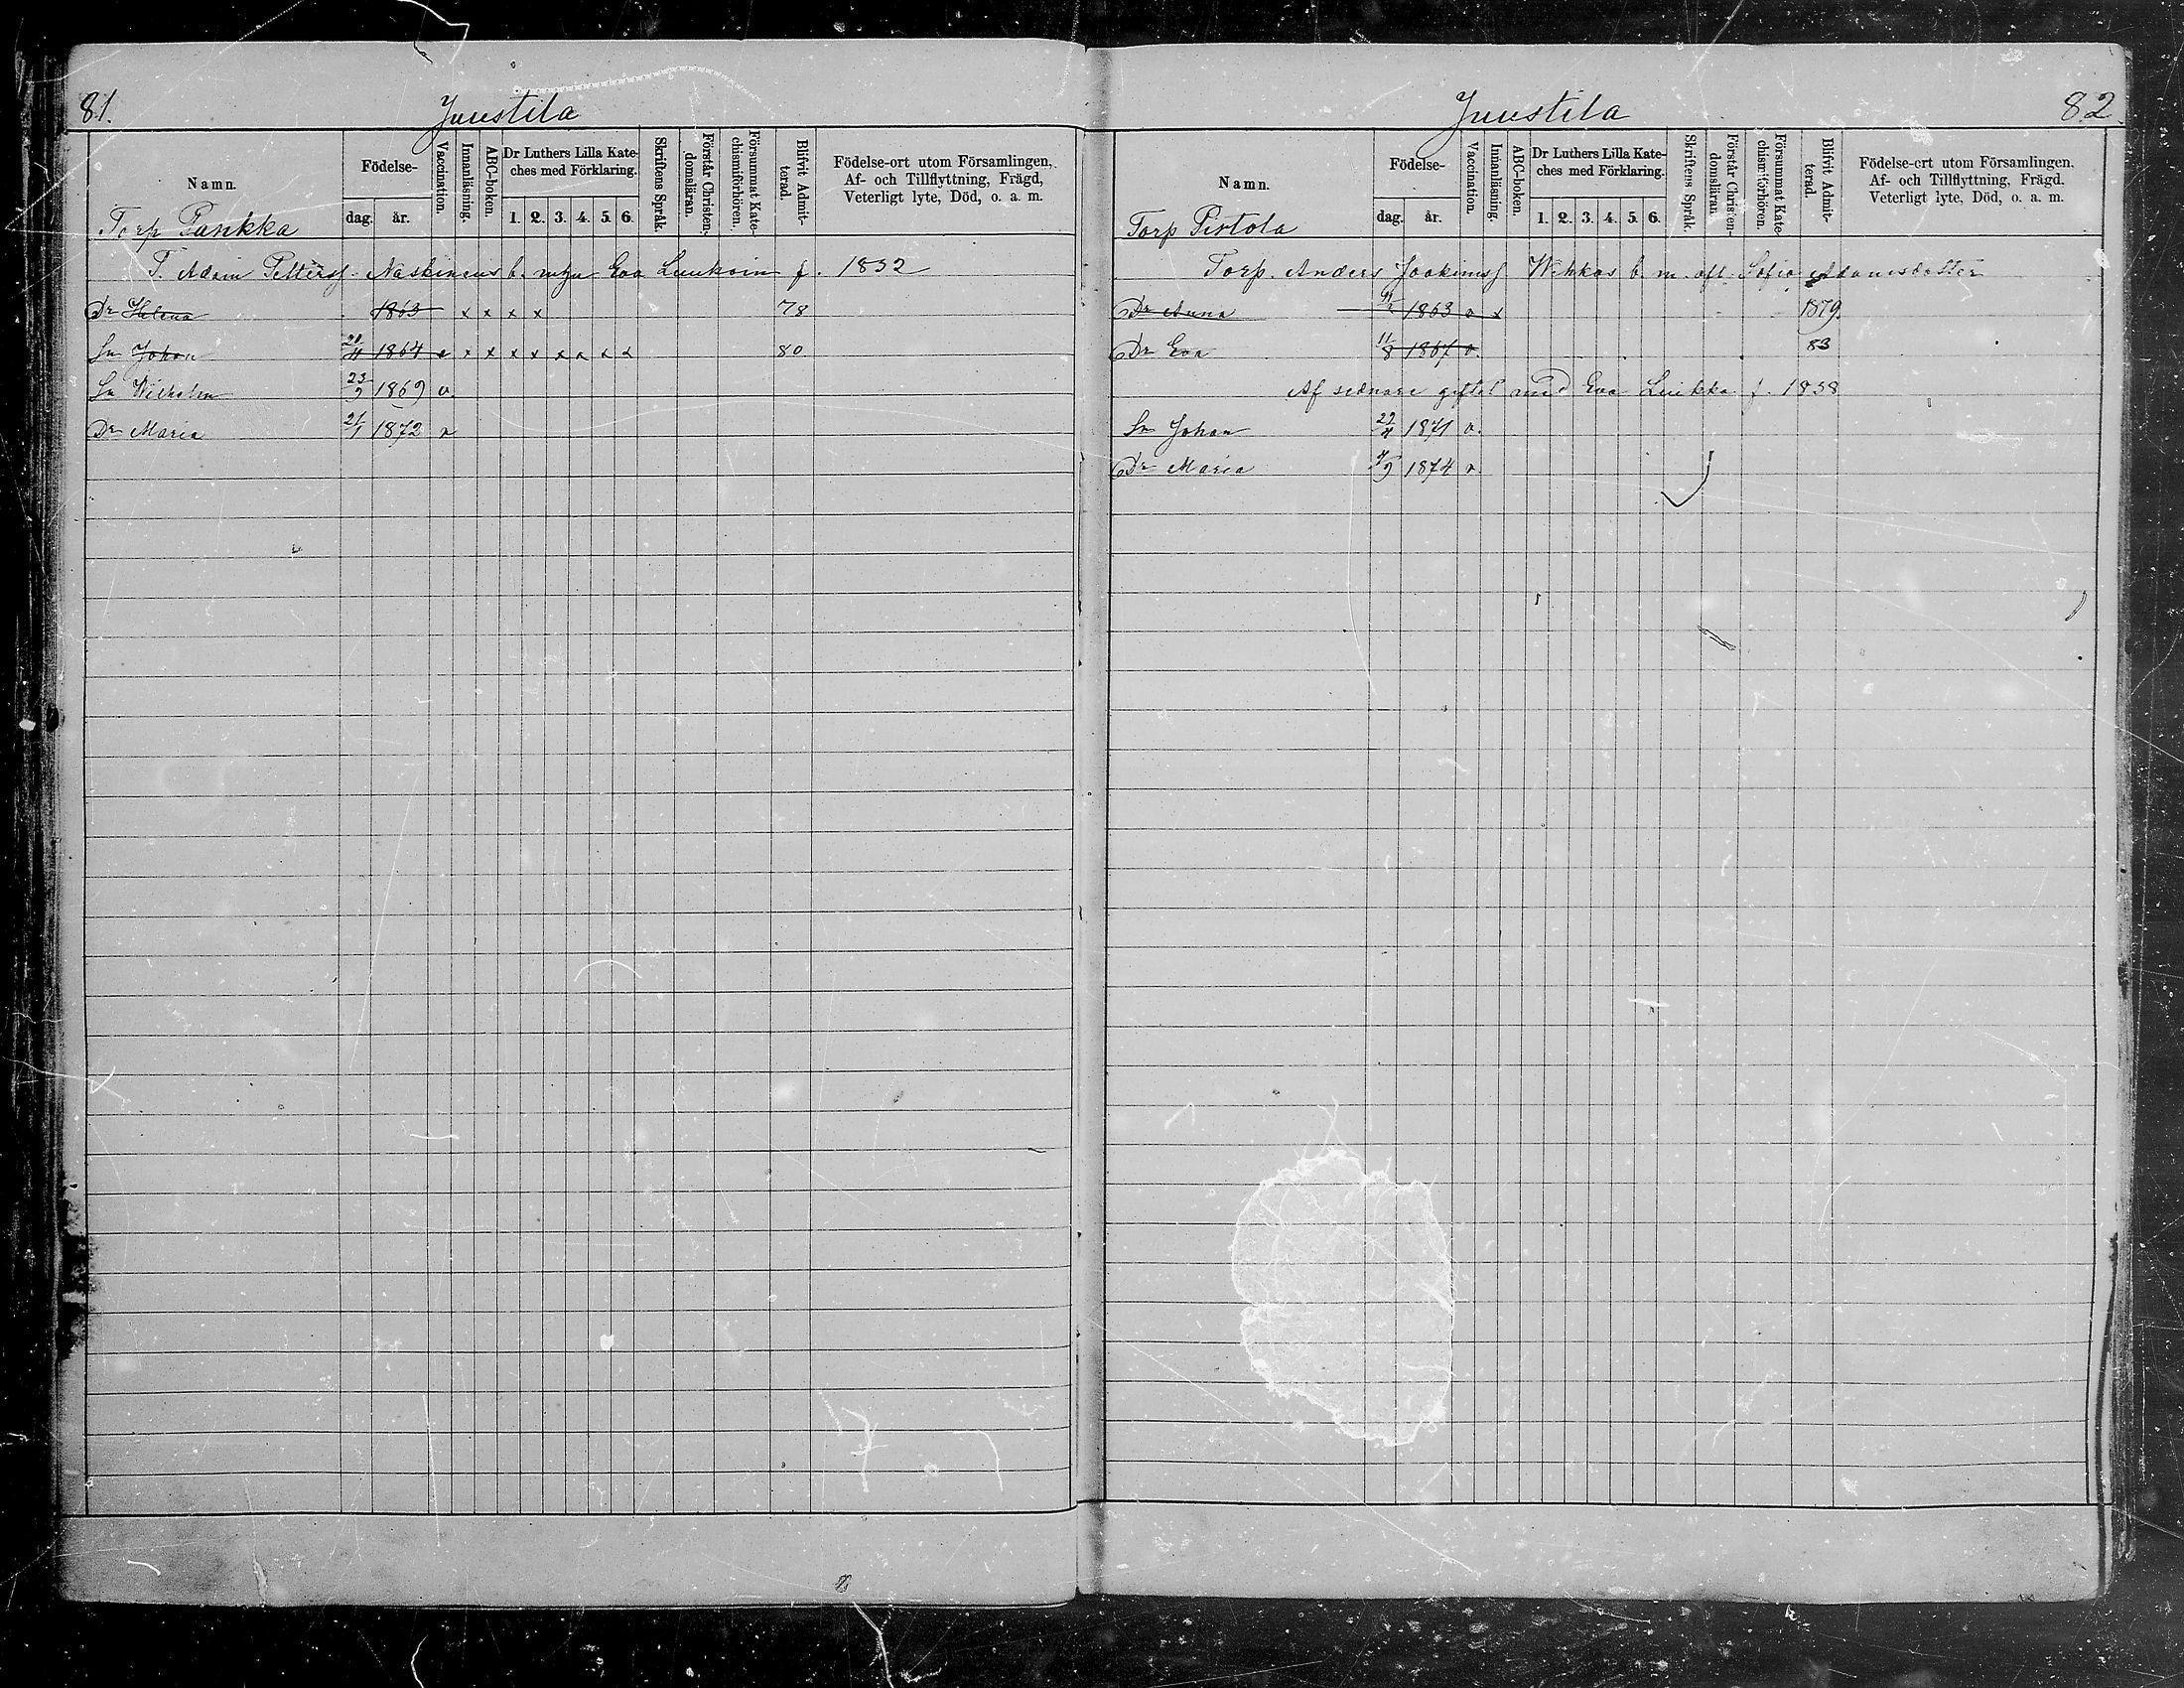 81.
Juustila
Namn.
Födelse-
dag.
år.
Vaccination.
Innanläsning.
ABC-boken.
Dr Luthers Lilla Kate-
ches med Förklaring.
1. 2. 3. 4. 5. 6.
Skriftens Språk.
Förstår Christen-
domsläran.
Försummat Kate-
chismiförhören.
Blifvit Admit-
terad.
Födelse-ort utom Församlingen,
Af- och Tillflyttning, Frägd,
Veterligt lyte, Död, o. a. m.
Torp Pankka
T. Adam Petterss. Naskinens b. m. Eva f. 1832
Dr Helena 1863 x x x x 78
Sn Johan 21/4 1864 v x x x x x x x x 80
Sn Wilhelm 23/9 1869 v
Dr Maria 21/1 1872 v
Juustila
82.
Namn.
Födelse-
dag.
år.
Vaccination.
Innanläsning.
ABC-boken.
Dr Luthers Lilla Kate-
ches med Förklaring.
1. 2. 3. 4. 5. 6.
Skriftens Språk.
Förstår Christen-
domsläran
Försummat Kate-
chismiförhören.
Blifvit Admit-
terad.
Födelse-ort utom Församlingen.
Af- och Tillflyttning, Frägd.
Veterligt lyte, Död, o. a. m.
Torp Pistola
Torp. Anders Joakimss Wihkos b. m. afl. Sofia Adamsdotter
Dr Anna 1863 v x 1879.
Dr Eva 11/8 1867 v. 83
Af sednare giftet med Eva Luikka f. 1838
Sn Johan 1871 v.
Dr Maria 1874 v.